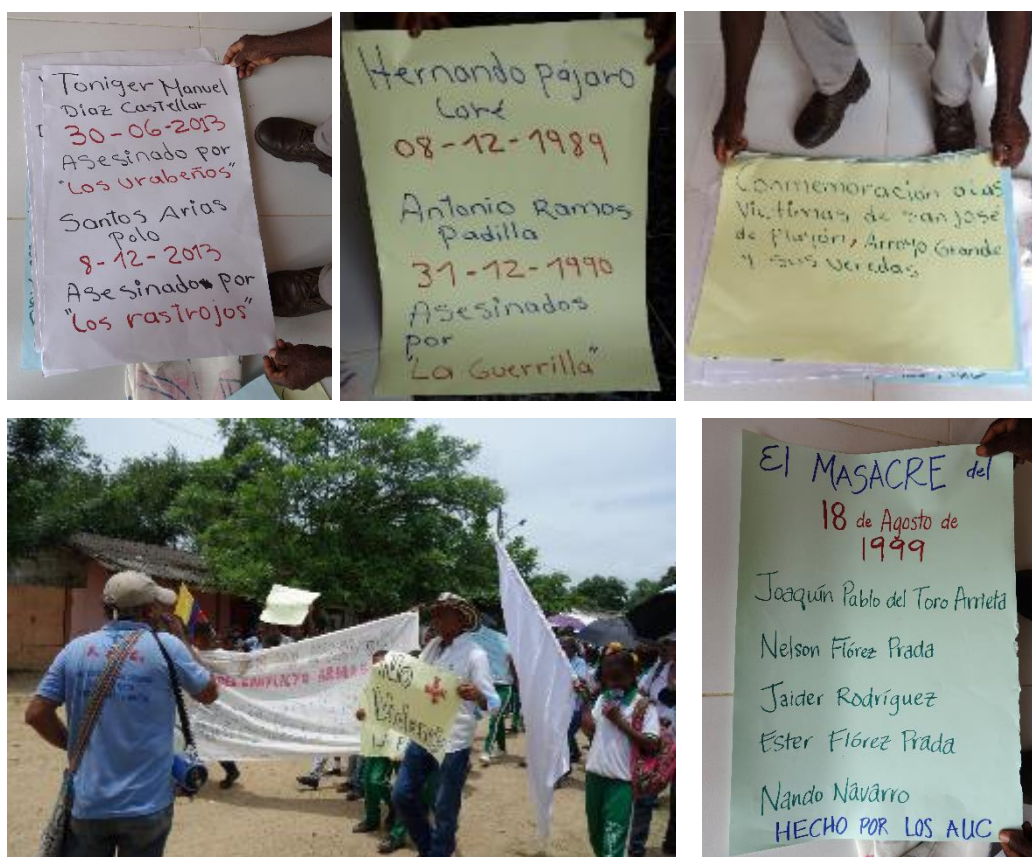 Toniger Manuel
Diaz Castellar
30-06-2013
Asesinado por
"Los Urabeños"
Santos Arias
Polo
8-12-2013
Asesinado por
"Los rastrojos"
Hernando Pájaro
Care
08-12-1989
Antonio Ramos
Padilla
31-12-1990
Asesinados
por
"La Guerrilla"
Conmemoración a las
Victimas de San José
de Playón, Arroyo Grande
y sus Veredas
DEL CONFLICTO ARMADO
Violencia
El MASACRE del
18 de Agosto de
1999
Joaquín Pablo del Toro Arrieta
Nelson Flórez Prada
Jaider Rodríguez
Ester Flórez Prada
Nando Navarro
HECHO POR LOS AUC